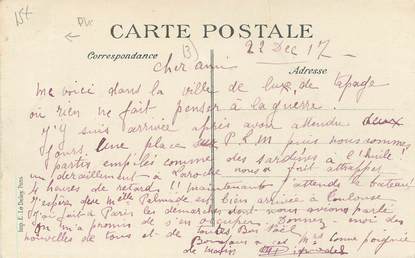 15€
CARTE POSTALE
Correspondance
Adresse
22 Dec 17
cher ami
me voici dans la ville de luxe, de tapage
où rien ne fait penser à la guerre.
J'y suis arrivée après avoir attendu deux
jours une place P.L.M puis nous sommes
partis empilés comme des sardines à l'huile!
un déraillement à Laroche nous a fait attraper
4 heures de retard!! maintenant j'attends le bateau!
J'espère que Melle Palmade est bien arrivée à Toulouse
J'ai fait à Paris les démarches dont nous avions parlé
On m'a promis de s'en occuper. Donnez moi des
nouvelles de tous et de toutes Bon Noël
Bonjour à et Mes bonne poignée
de mains
Imp. E. Le Deley, Paris